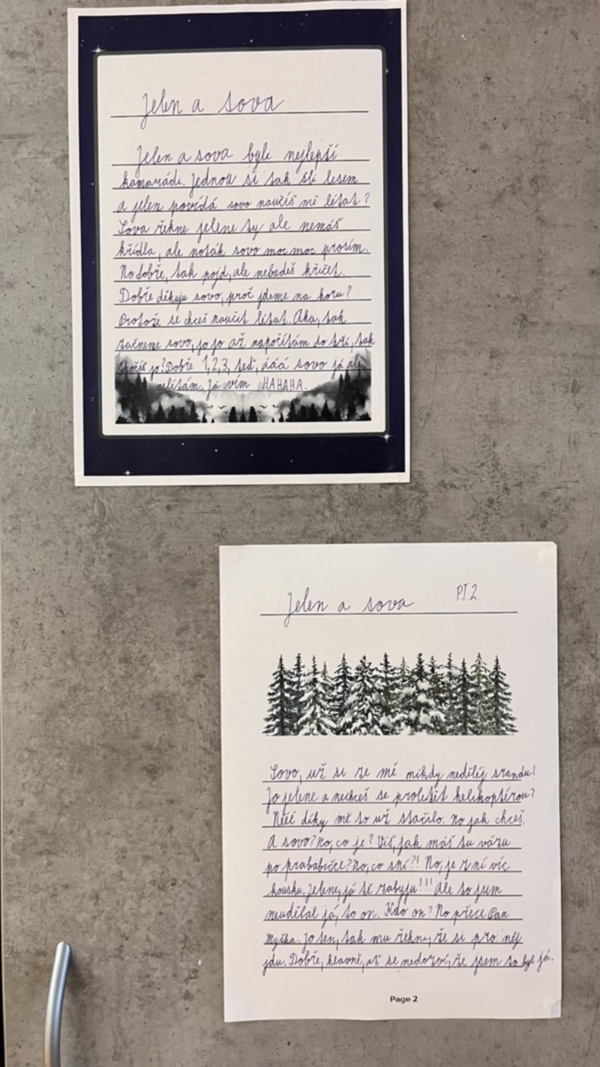 Jelen a sova
Jelen a sova byli nejlepší
kamarádi. Jednou si tak šli lesem
a jelen povídá sovo naučíš mě létat?
Sova řekne jelene ty ale nemáš
křídla, ale noták sovo moc moc prosím.
No dobře, tak pojd, ale nebudeš křičet.
Dobře děkuju sovo, proč jdeme na horu?
Protože se chceš naučit létat. Aha, tak
začneme sovo, jo jo až napočítám do tří, tak
skočíš jo? Dobře 1, 2, 3, teď, ááá sovo já
nelítám. Já vím HAHAHA.
Jelen a sova PT.2.
Sovo, už si ze mě nikdy nedělěj srandu!
Jo jelene a nechceš se proletět helikoptérou?
Néé díky mě to už stačilo. No jak chceš.
A sovo? No, co je? Víš, jak máš tu vázu
po prababičce? No, co sní?! No, je z ní víc
kousku. Jelene, já tě zabyju!!! Ale to jsem
neudělal já, to on. Kdo on? No přece Pan
Myška. Jo ten, tak mu řekni, že si pro něj
jdu. Dobře, hlavně, ať se nedozví, že jsem to byl já.
Page 2